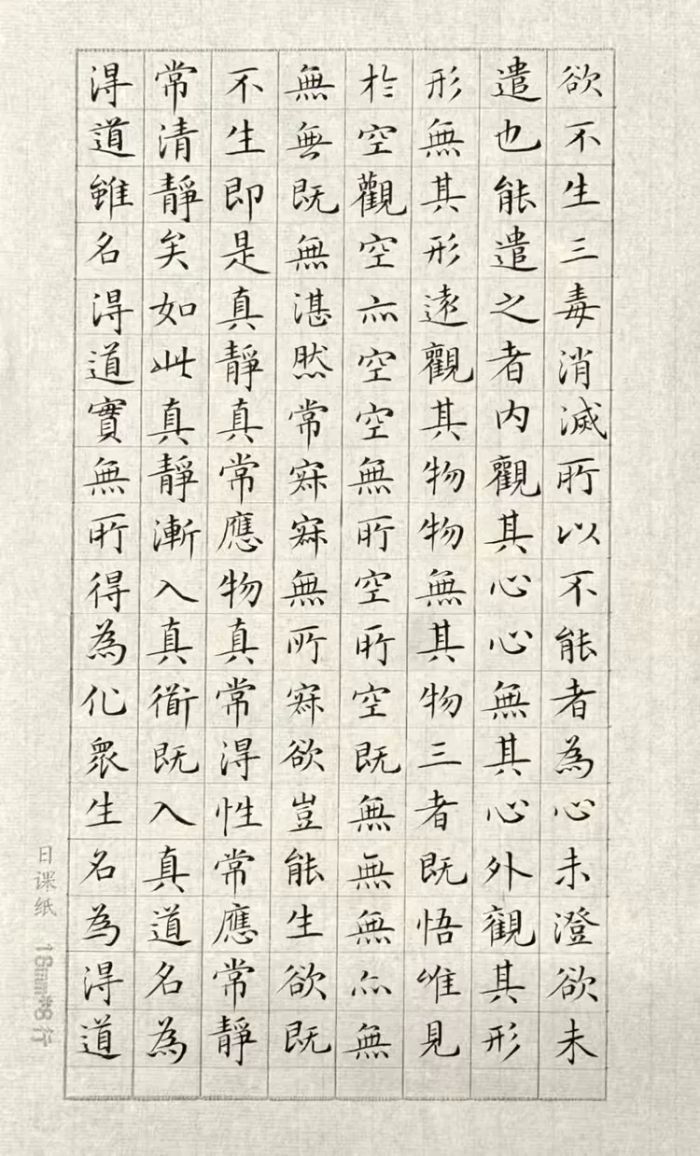 欲不生三毒消滅所以不能者為心未澄欲未
遣也能遣之者内觀其心心無其心外觀其形
形無其形遠觀其物物無其物三者既悟唯見
於空觀空亦空空無所空所空既無無無亦無
無無既無湛然常寂寂無所寂欲豈能生欲既
不生即是真靜真常應物真常得性常應常靜
常清靜矣如此真靜漸入真衜既入真道名為
得道雖名得道實無所得為化眾生名為得道
日课纸